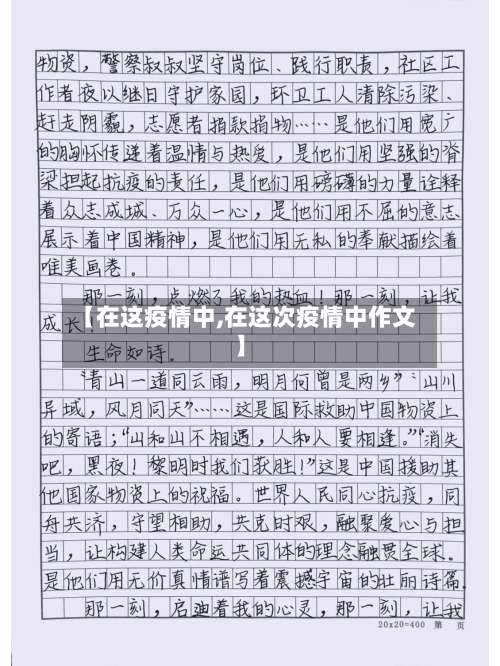 物资，警察叔叔坚守岗位、践行职责，社区工
作者夜以继日守护家园，环卫工人清除污染、
赶走阴霾，志愿者捐款捐物……是他们用宽广
的胸怀传递着温情与热爱，是他们用坚强的脊
梁担起抗疫的责任，是他们用磅礴的力量诠释
着众志成城、万众一心，是他们用不屈的意志
展示着中国精神，是他们用无私的奉献描绘着
唯美画卷。
那一刻，点燃了我的热血！那一刻，让我
成长！
【在这疫情中,在这次疫情中作文
】
生命如诗。
“青山一道同云雨，明月何曾是两乡”“山川
异域，风月同天”……这是国际救助中国物资上
的寄语；“山和山不相遇，人和人要相逢。”“消失
吧，黑夜！黎明时我们获胜！”这是中国援助其
他国家物资上的祝福。世界人民同心抗疫，同
舟共济，守望相助，共克时艰，融聚爱心与担
当，让构建人类命运共同体的理念融贯全球。
是他们用无价真情谱写着震撼宇宙的壮丽诗篇。
那一刻，启迪着我的心灵，那一刻，让我
20x20=400 第 页